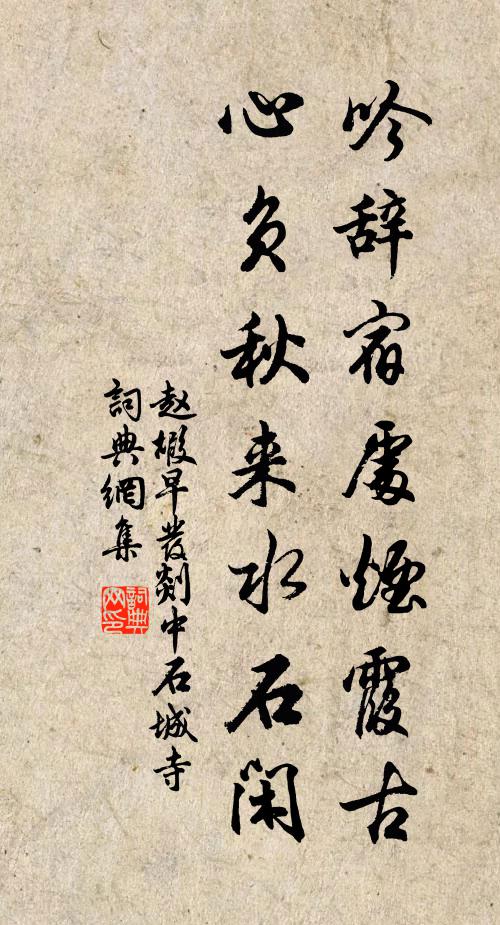 吟辞宿處煙霞古
心负秋来水石閑
赵嘏早發剡中石城寺
詞典網集
詞典网印